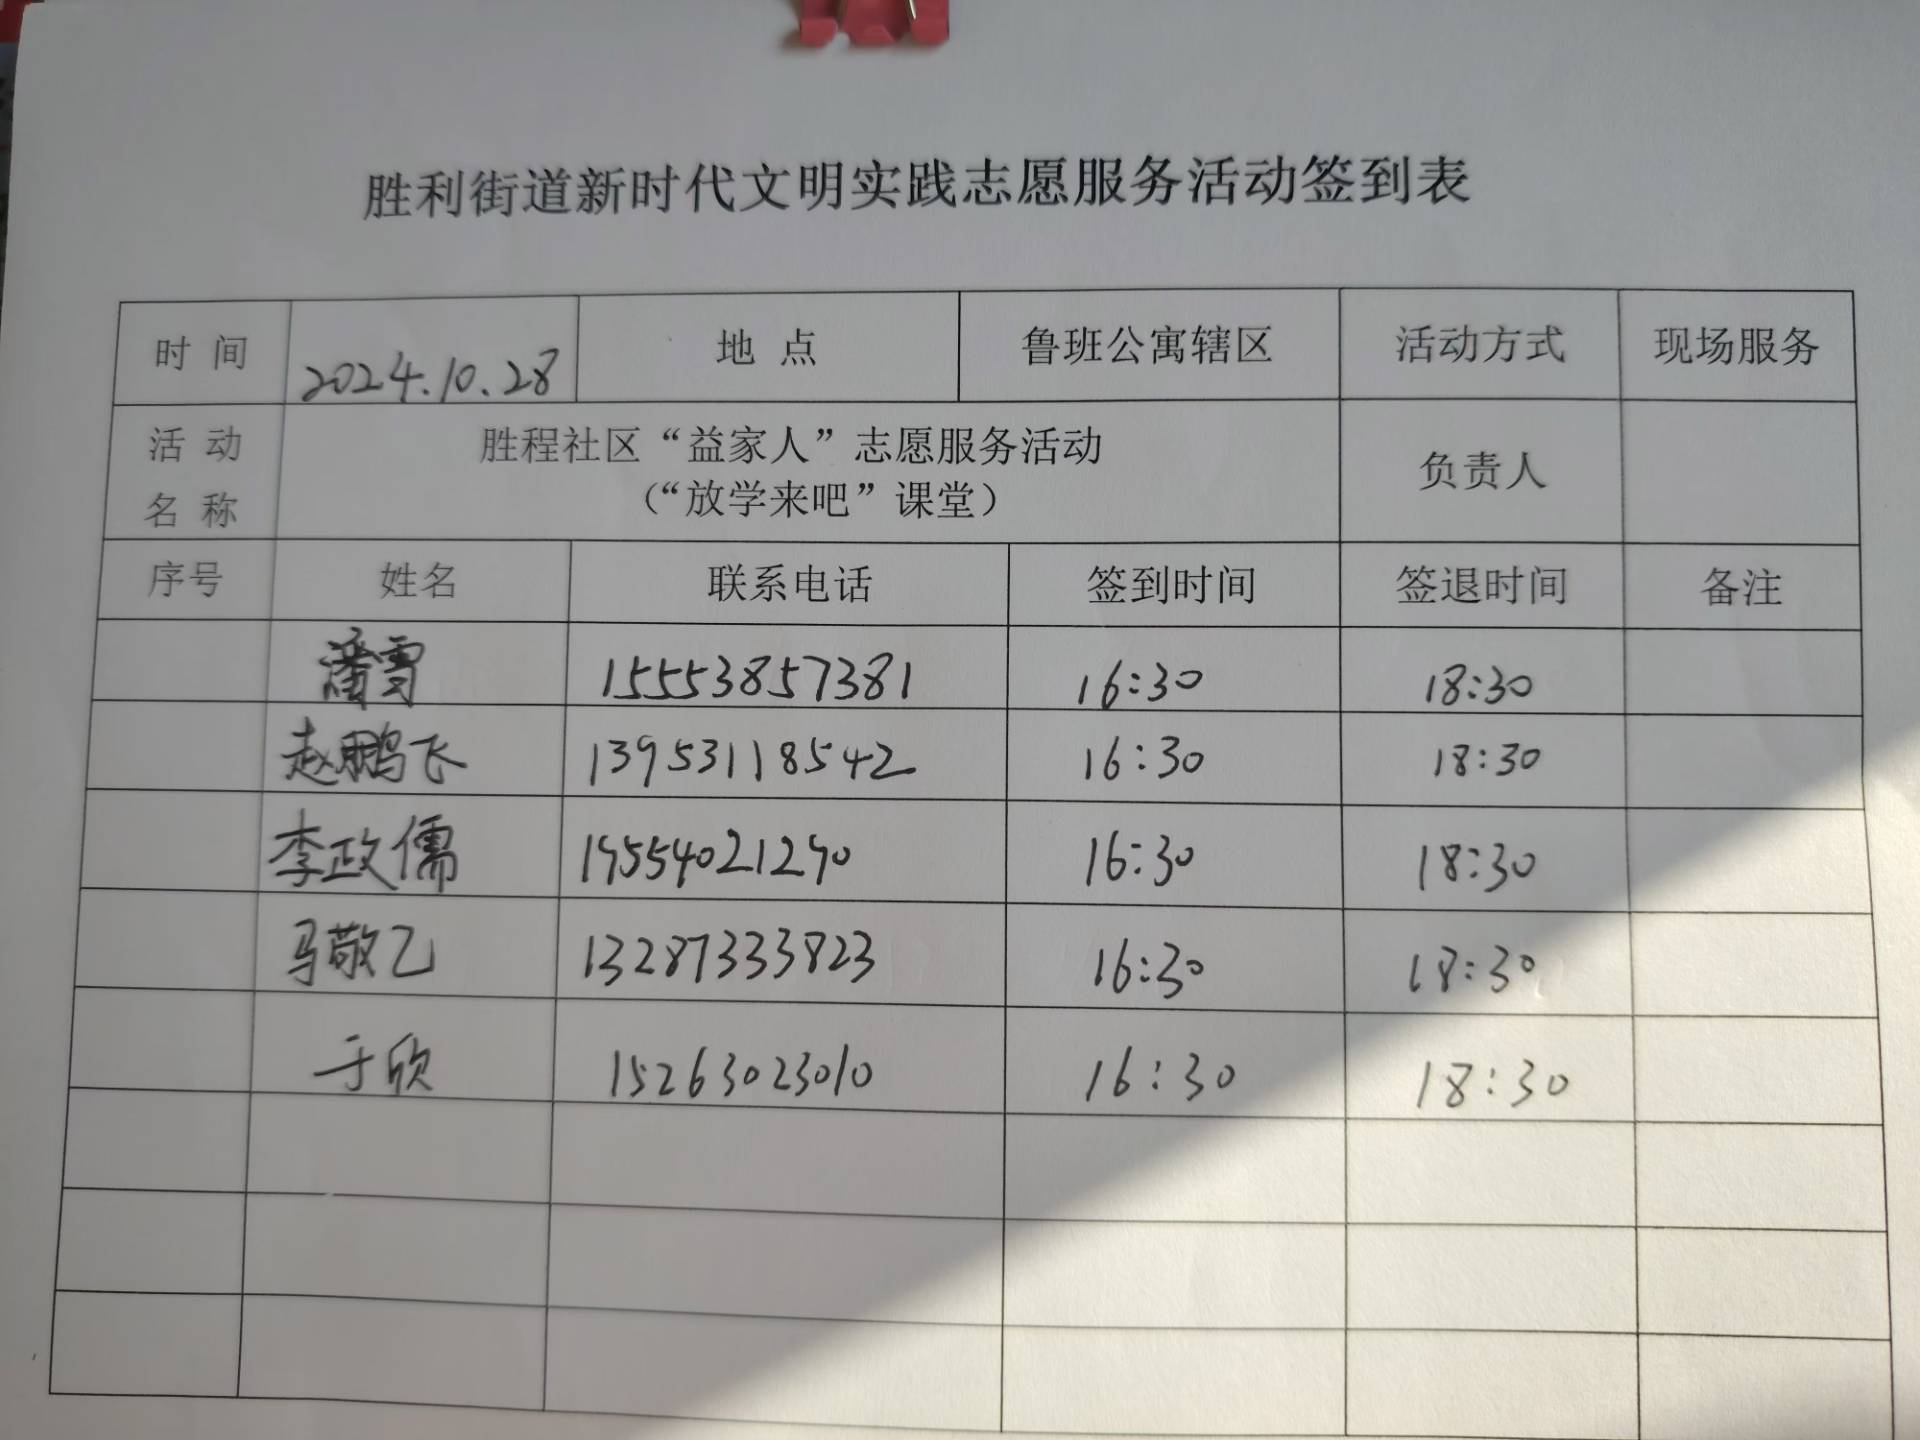 胜利街道新时代文明实践志愿服务活动签到表
时 间 2024.10.28 地 点 鲁班公寓辖区 活动方式 现场服务
活 动
名 称
胜程社区“益家人”志愿服务活动
（“放学来吧”课堂）
负责人
序号 姓名 联系电话 签到时间 签退时间 备注
潘雪 15553857381 16:30 18:30
赵鹏飞 13953118542 16:30 18:30
李政儒 16:30 18:30
马敬乙 13287333823 16:30 18:30
于欣 15263023010 16:30 18:30